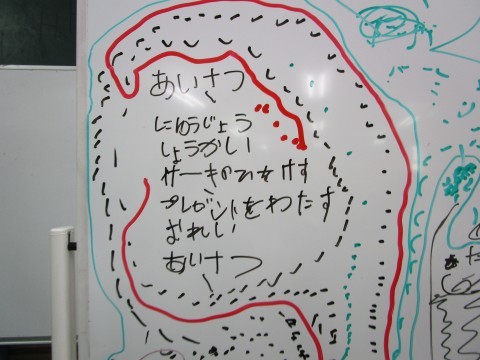 あいさつ
にゅうじょう
しょうかい
ケーキのひをけす
プレゼントをわたす
おれい
あいさつ